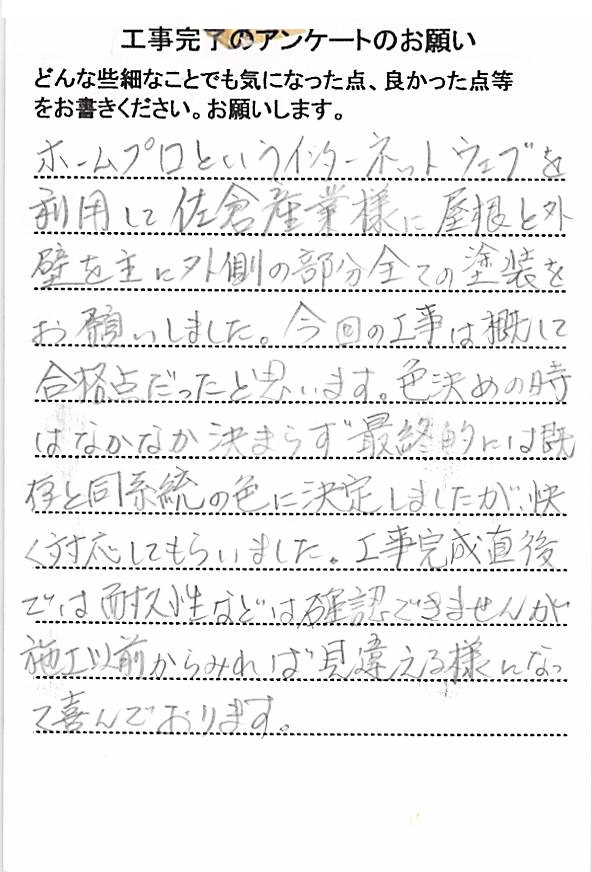 工事完了のアンケートのお願い
どんな些細なことでも気になった点、良かった点等
をお書きください。お願いします。
ホームプロというインターネットウェブを
利用して佐倉産業様に屋根と外
壁を主に外側の部分全ての塗装を
お願いしました。今回の工事は概して
合格点だったと思います。色決めの時
はなかなか決まらず最終的には既
存と同系統の色に決定しましたが、快
く対応してもらいました。工事完成直後
では耐久性などは確認できませんが
施工以前からみれば見違える様になっ
て喜んでおります。